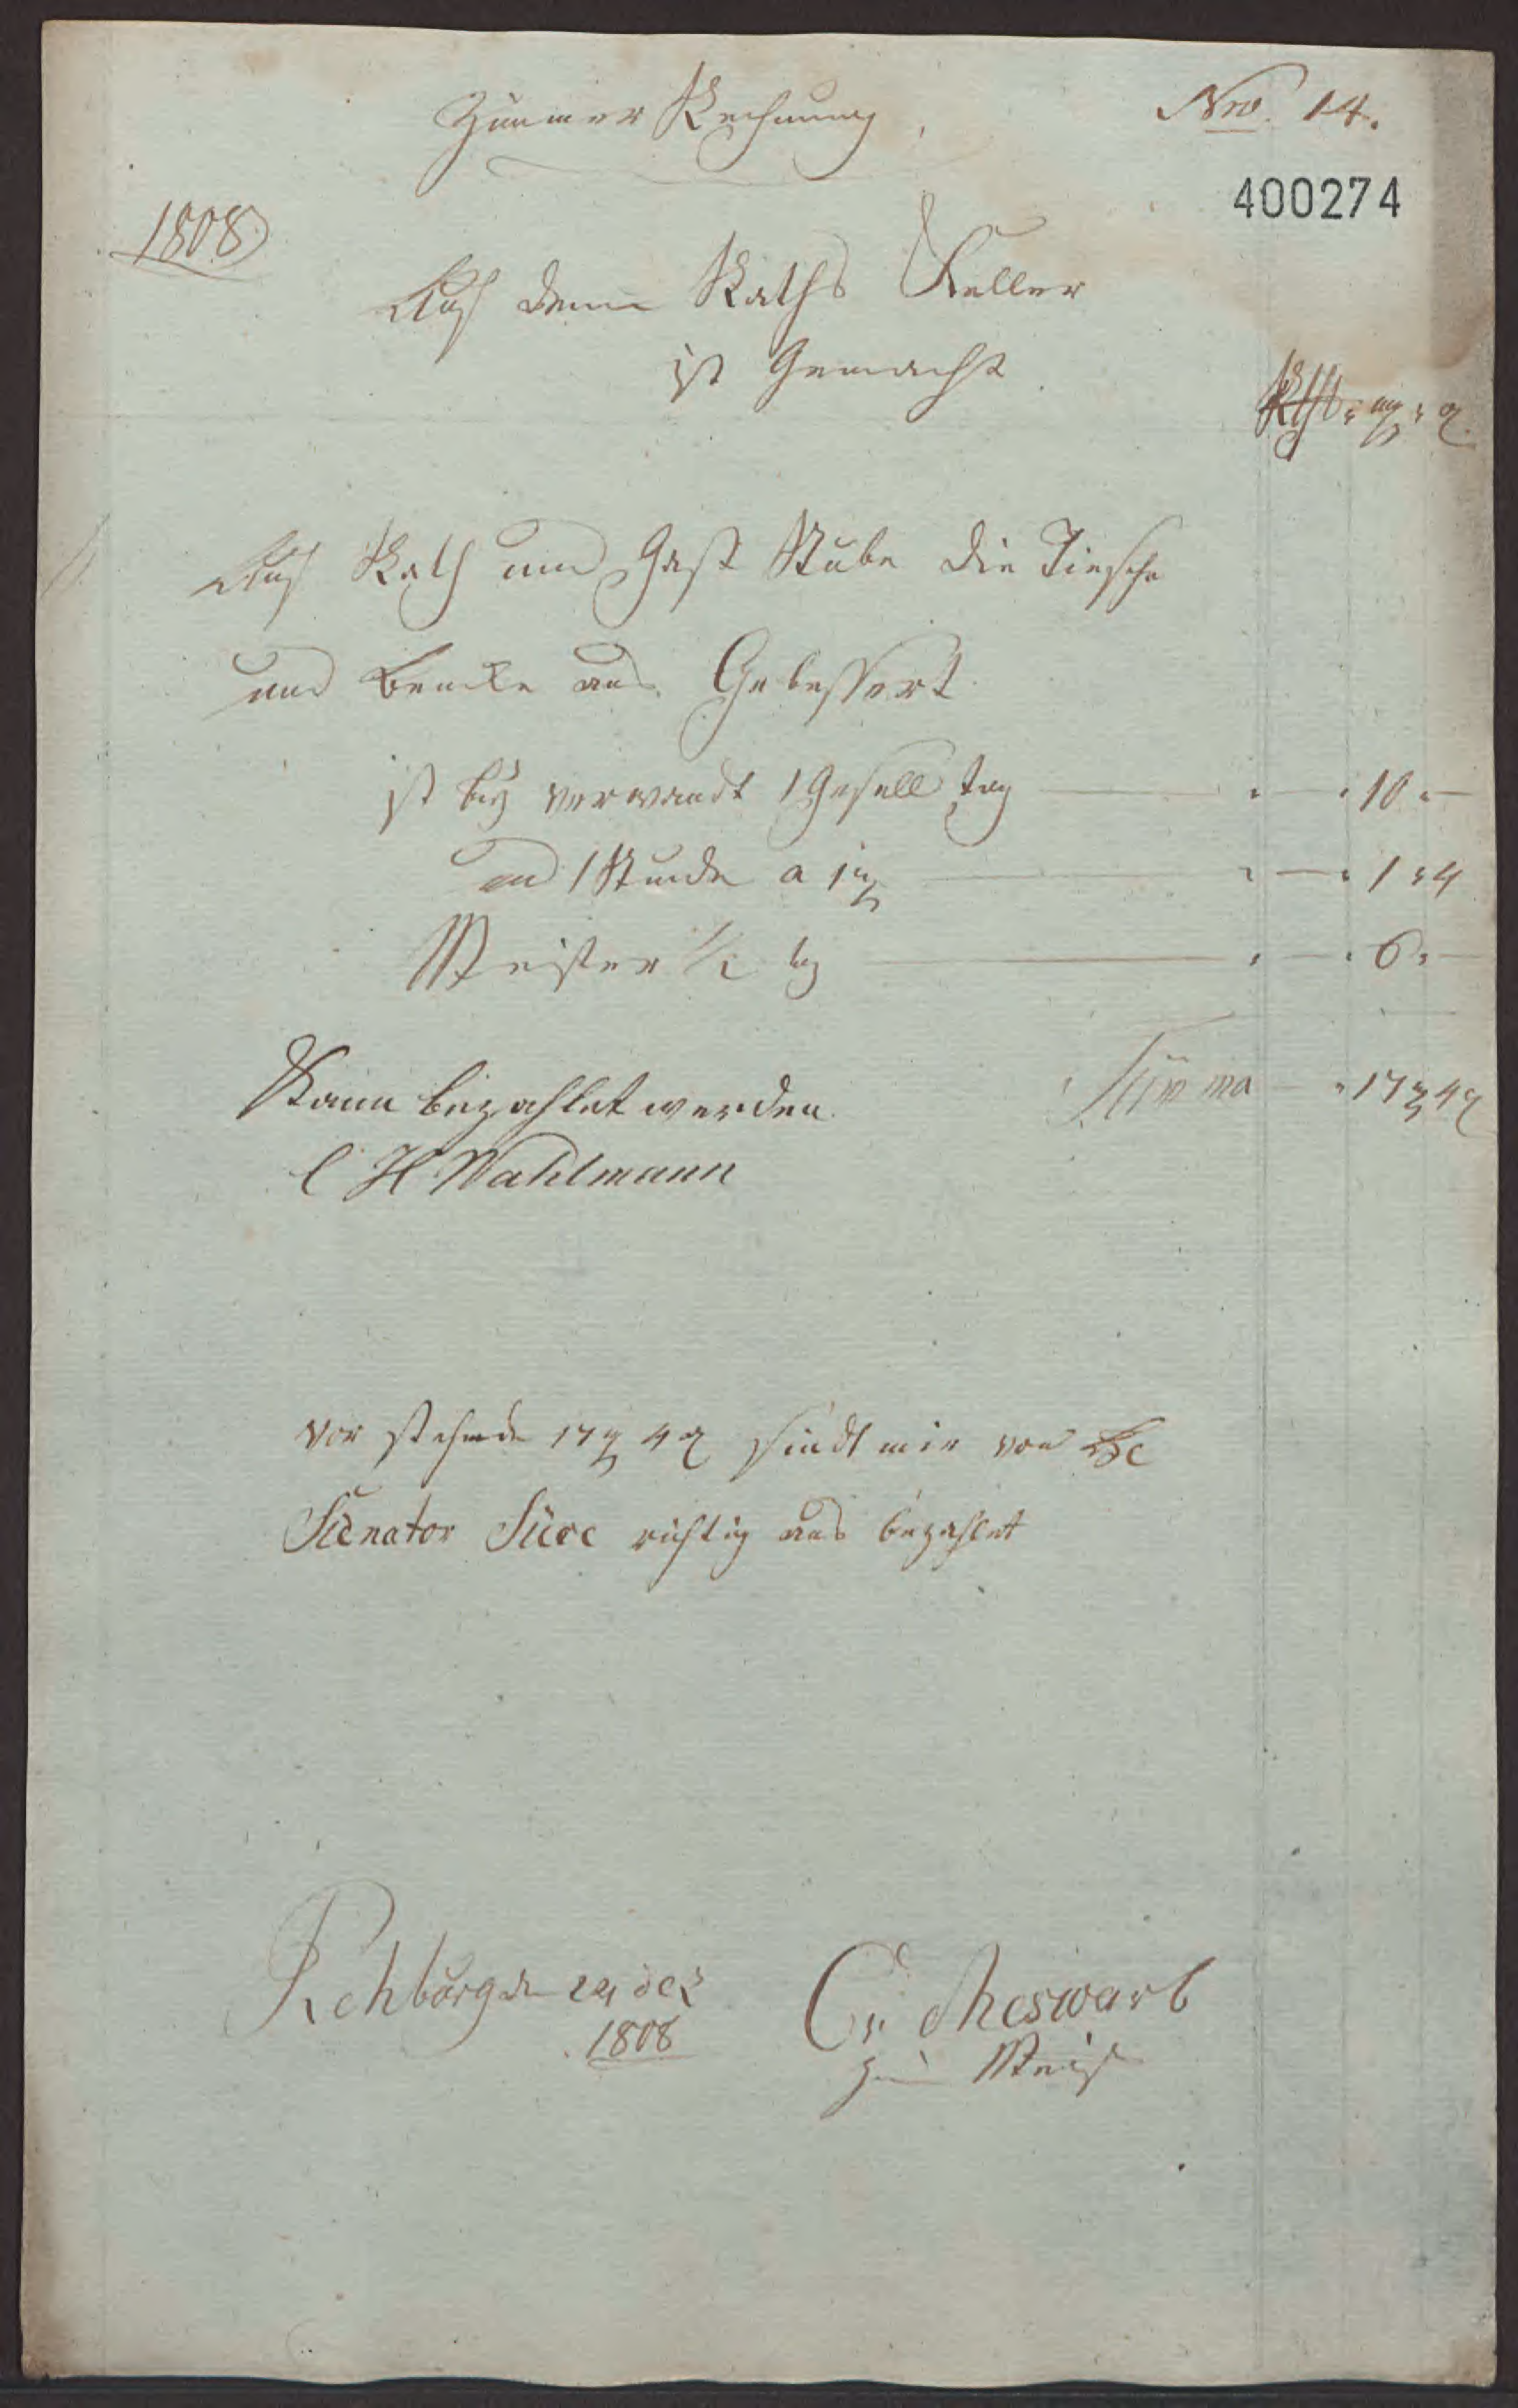 Zimmer Rechnung
Nro. 14.
400274
1808
Auf dem Raths Keller
ist Gemacht
Rthl mg ₰
Auf Rath und Gast Stube die Tische
und Bencke aus Gebessert
ist bey verwandt 1 Gesell tag — 10 —
und 1 Stunde a 1 mg — 1 4
Meister ½ tag — 6 —
Summa 17 mg 4 ₰
Kann bezahlet werden.
C H Wahlmann
Vor stehende 17 mg 4 ₰ sindt mir von
Senator richtig aus bezahlet
Rehburg den 24 dec
1808
Meswarb
Zim Meist